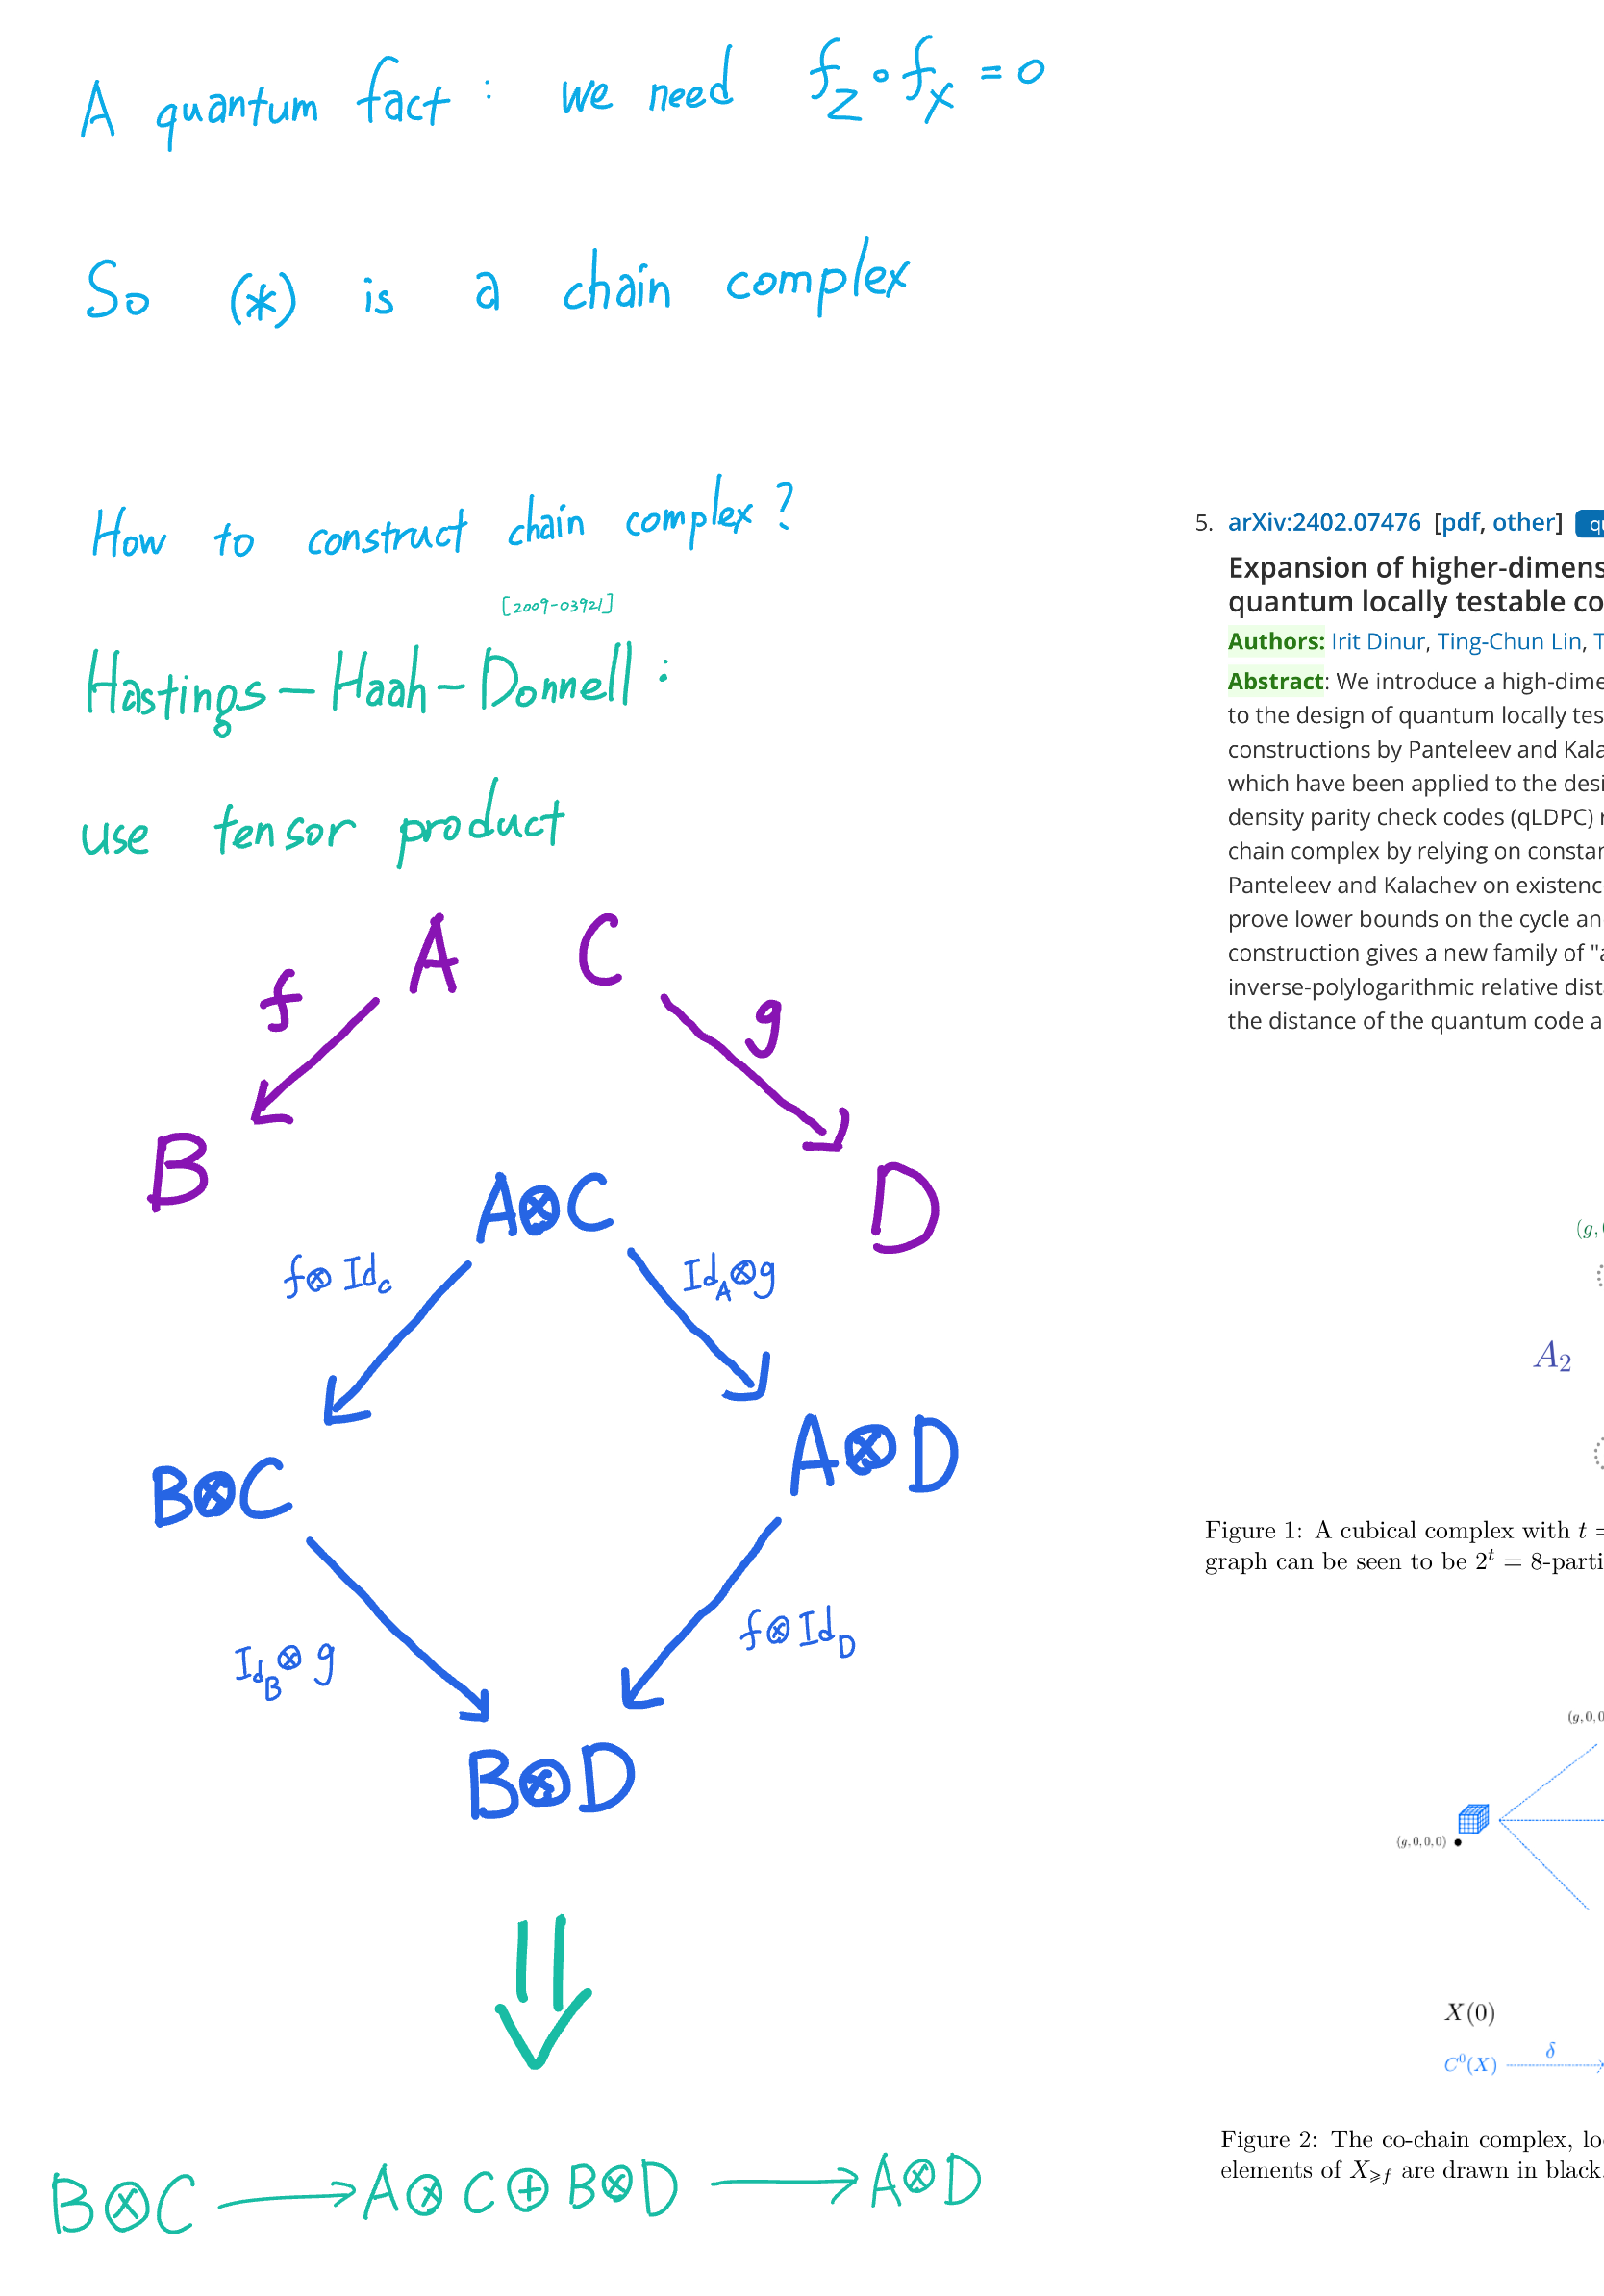 A quantum fact : we need f_Z ∘ f_X = 0
So (*) is a chain complex
How to construct chain complex?
[2009-03921]
Hastings – Haah – Donnell :
use tensor product
A C
f g
B D
A⊗C
f⊗Id_C Id_A⊗g
B⊗C A⊗D
Id_B⊗g f⊗Id_D
B⊗D
⇓
B⊗C → A⊗C ⊕ B⊗D → A⊗D
5. arXiv:2402.07476 [pdf, other] qu
Expansion of higher-dimens
quantum locally testable co
Authors: Irit Dinur, Ting-Chun Lin, T
Abstract: We introduce a high-dime
to the design of quantum locally tes
constructions by Panteleev and Kala
which have been applied to the desi
density parity check codes (qLDPC) r
chain complex by relying on constan
Panteleev and Kalachev on existenc
prove lower bounds on the cycle an
construction gives a new family of "a
inverse-polylogarithmic relative dista
the distance of the quantum code a
(g, 0
A_2
Figure 1: A cubical complex with t =
graph can be seen to be 2^t = 8-parti
(g, 0, 0
(g, 0, 0, 0)
X(0)
C^0(X) δ
Figure 2: The co-chain complex, lo
elements of X_{⩾f} are drawn in black.